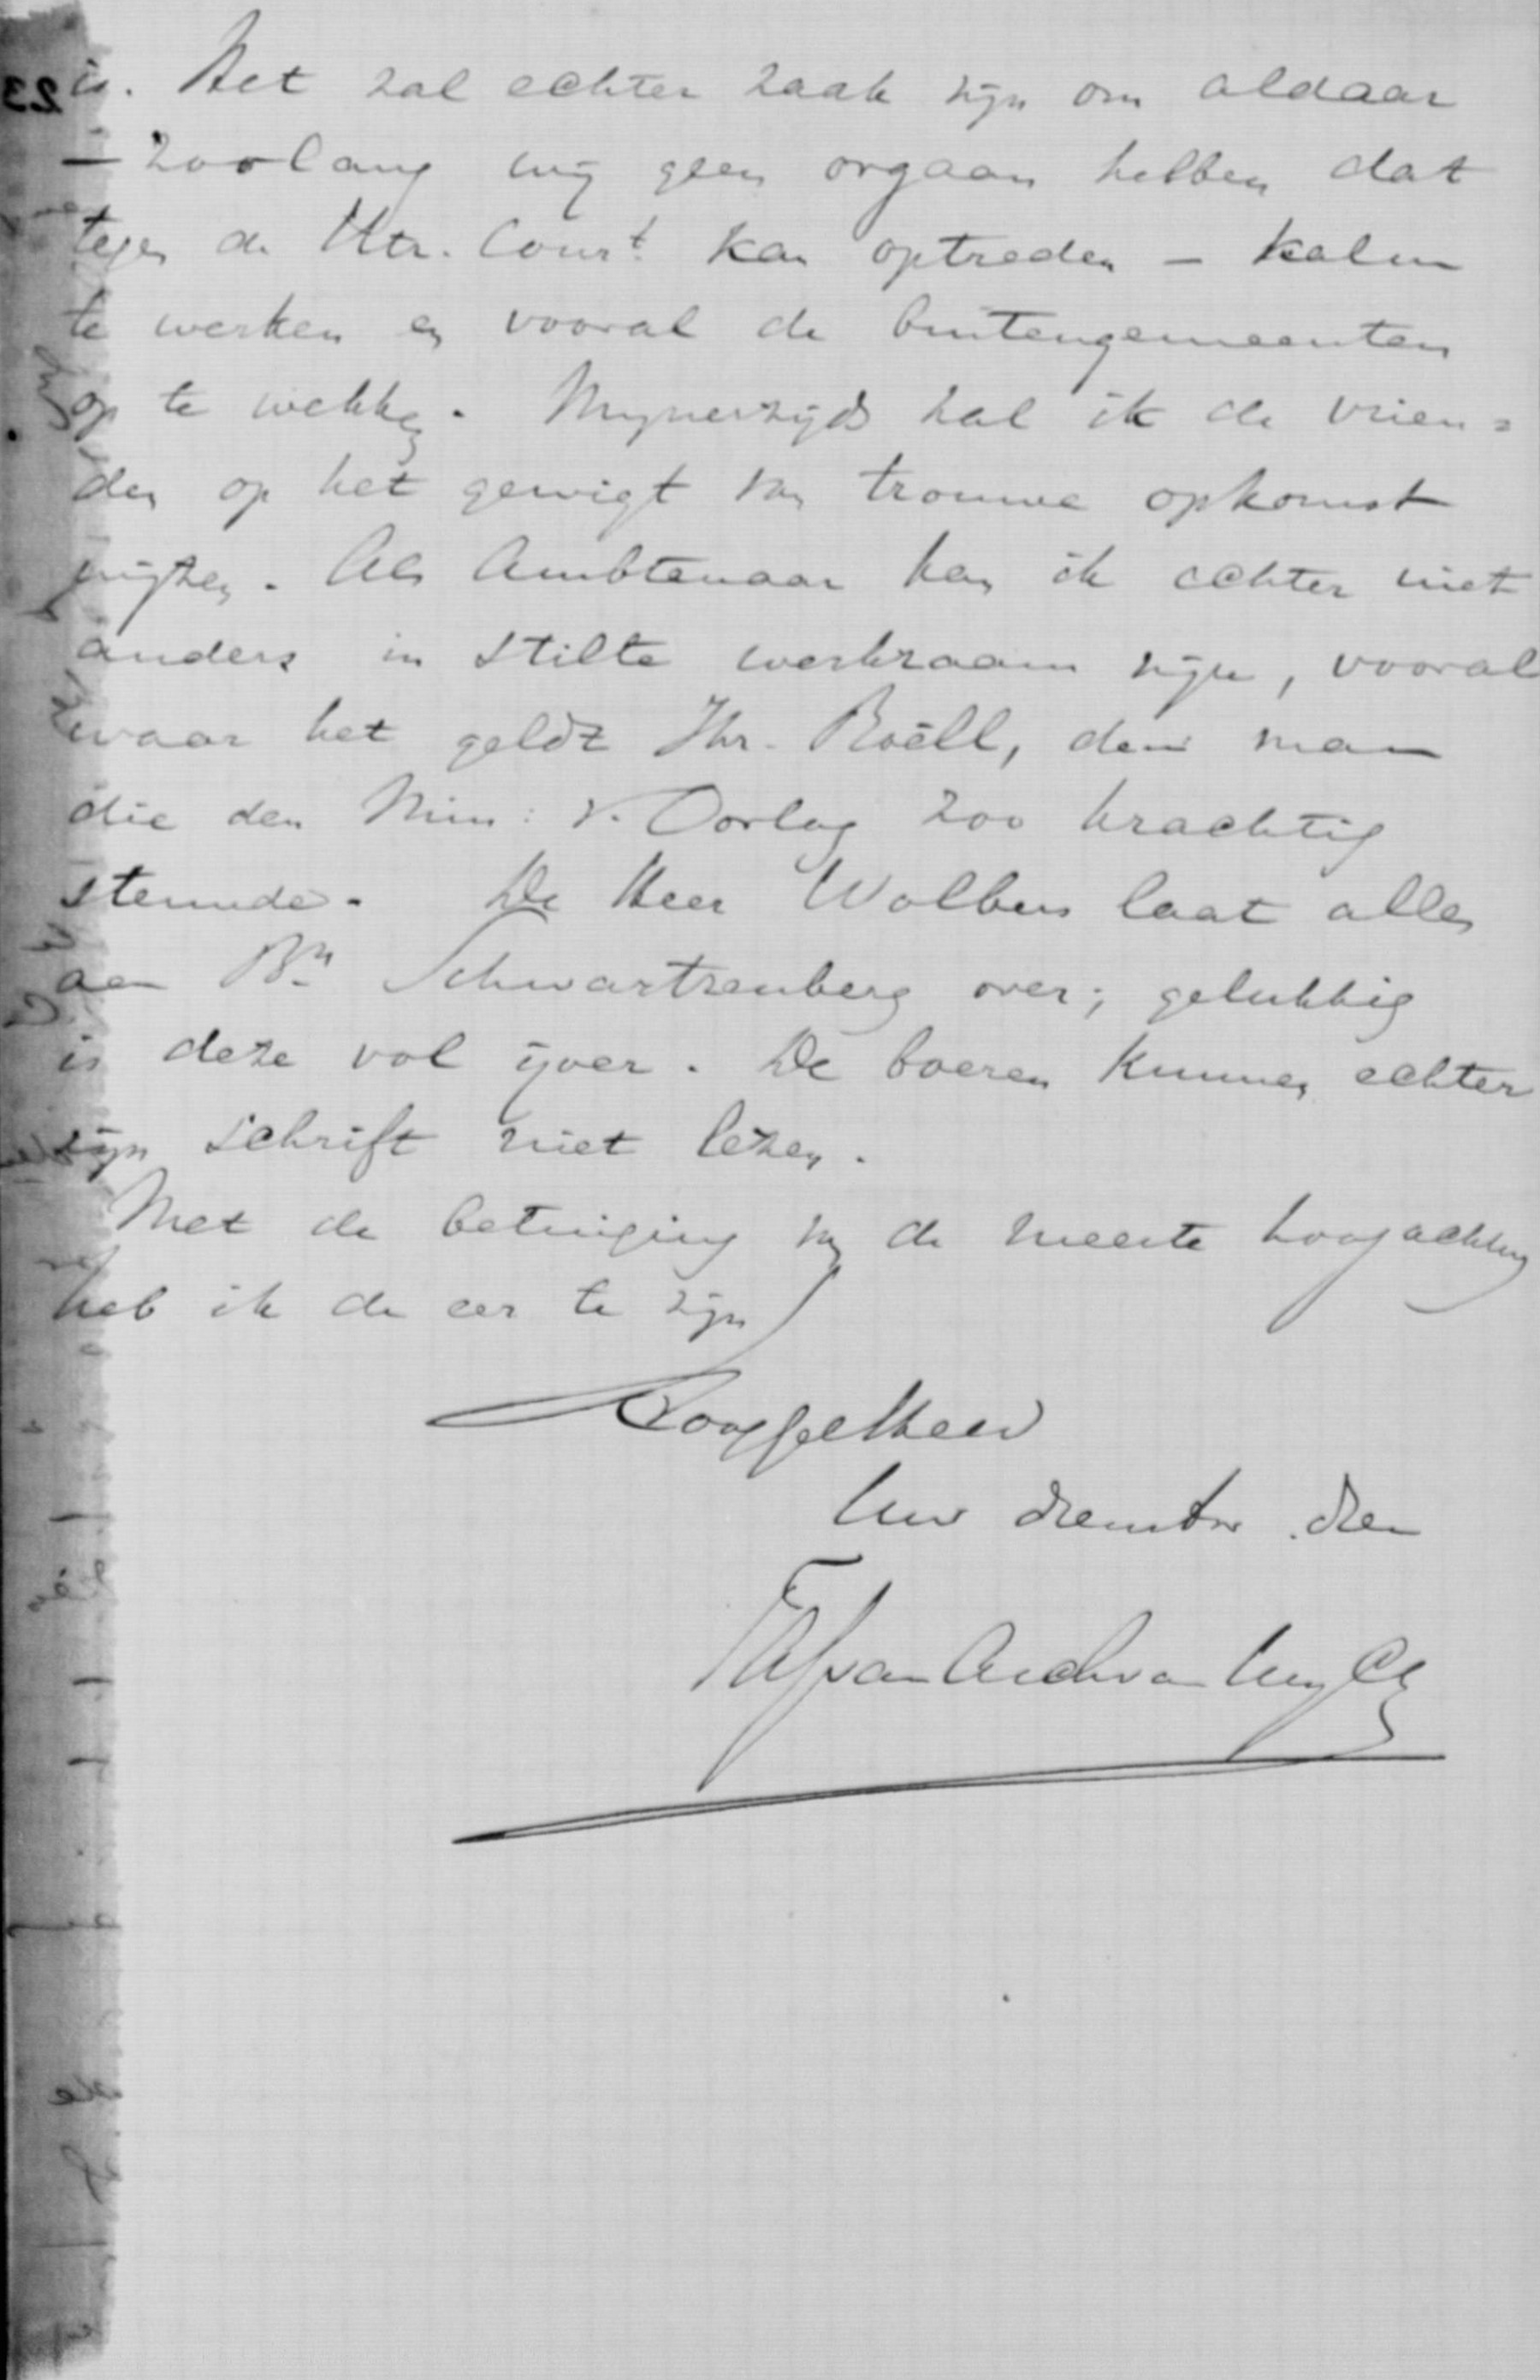 is. Het zal echter zaak zijn om aldaar
— zoolang wij geen orgaan hebben dat
tegen de Utr. Cour.t kan optreden — kalm
te werken en vooral de buitengemeenten
op te wekken. Mijnerzijds zal ik de vrien=
den op het gewigt van trouwe opkomst
wijzen. Als Ambtenaar kan ik echter niet
anders in stilte werkzaam zijn, vooral
waar het geldt Jhr. Roëll, den man
die den Min: v. Oorlog zoo krachtig
steunde. De Heer Wolbers laat alles
aan Bn Schwartzenberg over; gelukkig
is deze vol ijver. De boeren kunnen echter
zijn schrift niet lezen.
Met de betuiging van de meeste hoogachting
heb ik de eer te zijn
Hooggel Heer
Uw dienstw. dien